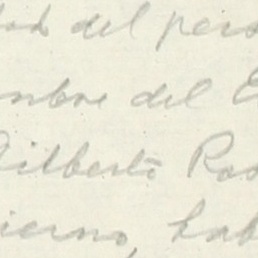 dad del pers
mbre del E
Gilberto Ros
ierno, hab